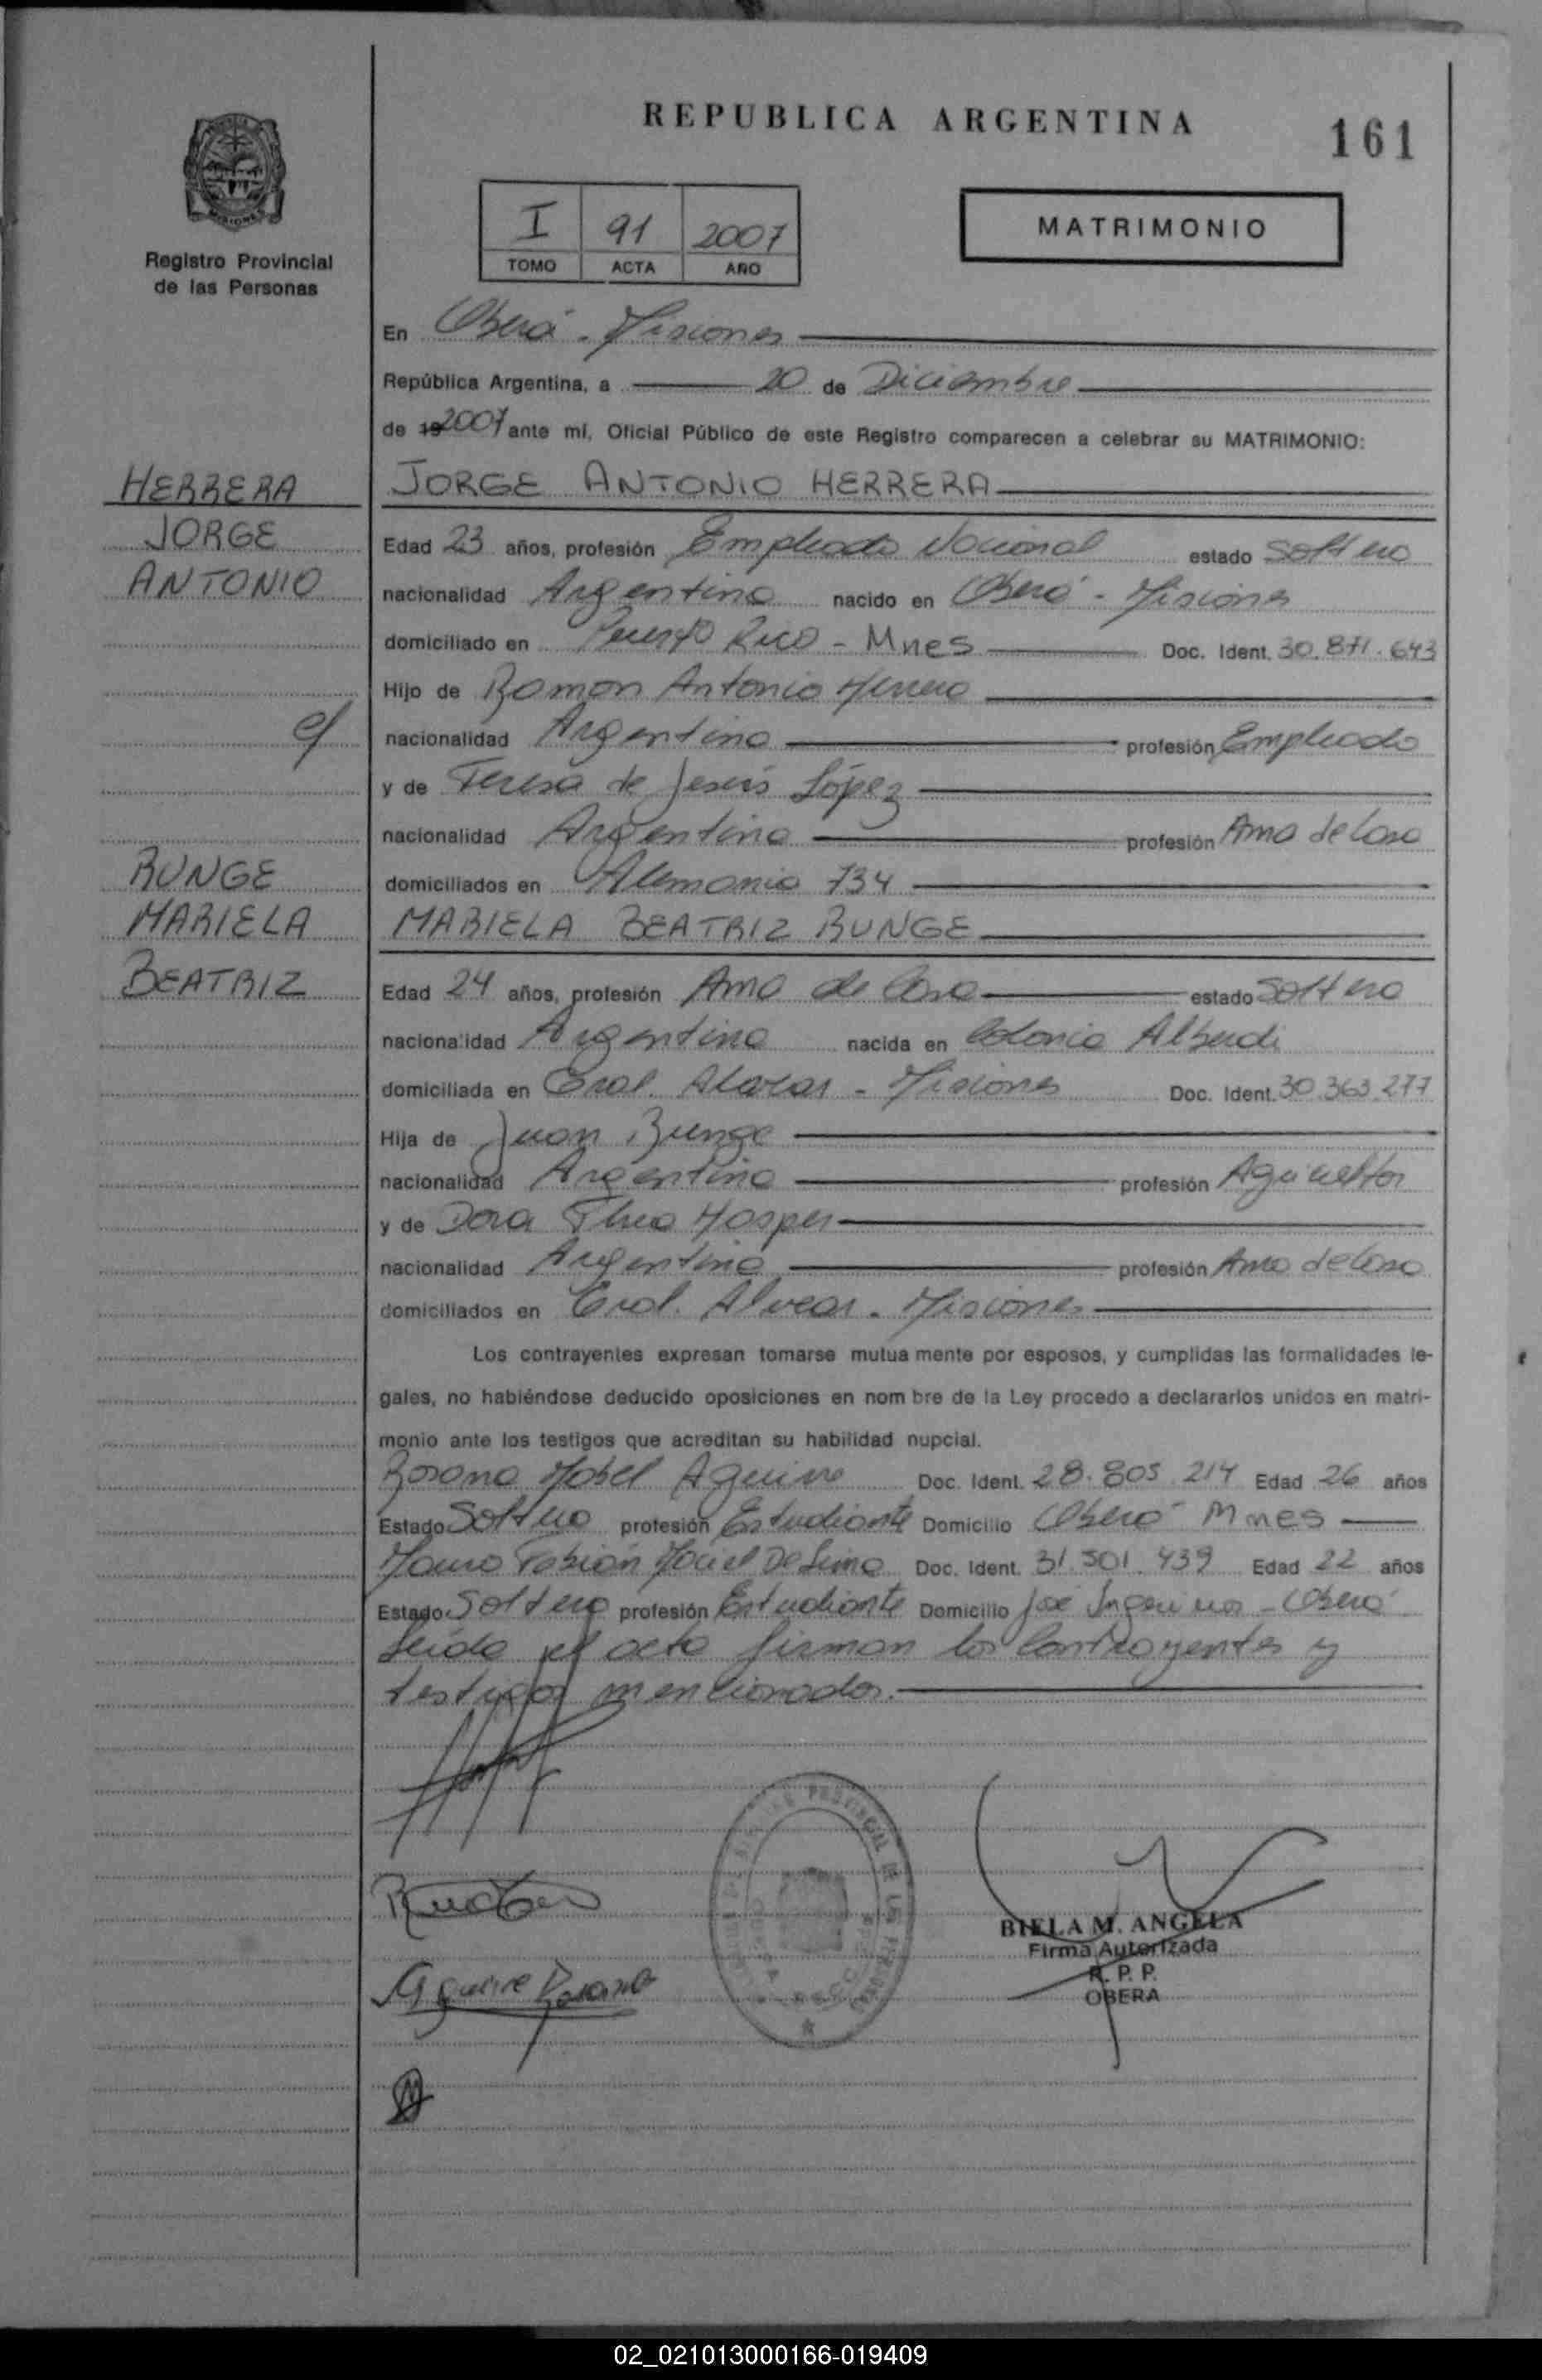 REPUBLICA ARGENTINA
161
MISIONES
Registro Provincial
de las Personas
I 91 2007
TOMO ACTA AÑO
MATRIMONIO
En Oberá - Misiones
República Argentina, a 20 de Diciembre
de 19 2007 ante mí, Oficial Público de este Registro comparecen a celebrar su MATRIMONIO:
HERRERA
JORGE
ANTONIO
JORGE ANTONIO HERRERA
Edad 23 años, profesión Empleado Nacional estado Soltero
nacionalidad Argentina nacido en Oberá - Misiones
domiciliado en Puerto Rico - Mnes Doc. Ident. 30.871.643
Hijo de Ramon Antonio Herrera
c/
nacionalidad Argentina profesión Empleado
y de Teresa de Jesús López
nacionalidad Argentina profesión Ama de Casa
domiciliados en Alemania 734
RUNGE
MARIELA
BEATRIZ
MARIELA BEATRIZ RUNGE
Edad 24 años, profesión Ama de Casa estado Soltera
nacionalidad Argentina nacida en Colonia Alberdi
domiciliada en Gral. Alvear - Misiones Doc. Ident. 30.363.277
Hija de Juan Runge
nacionalidad Argentina profesión Agricultor
y de Dora Hosper
nacionalidad Argentina profesión Ama de Casa
domiciliados en Gral. Alvear - Misiones
Los contrayentes expresan tomarse mutua mente por esposos, y cumplidas las formalidades le-
gales, no habiéndose deducido oposiciones en nom bre de la Ley procedo a declararlos unidos en matri-
monio ante los testigos que acreditan su habilidad nupcial.
Rosana Mabel Aguirre Doc. Ident. 28.805.214 Edad 26 años
Estado Soltera profesión Estudiante Domicilio Oberá - Mnes
Mauro Fabián Maciel De Lima Doc. Ident. 31.501.439 Edad 22 años
Estado Soltero profesión Estudiante Domicilio José Ingenieros - Oberá
Leída el acta firman los Contrayentes y
testigos mencionados.
Aguirre Rosana
BIELA M. ANGELA
Firma Autorizada
R. P. P.
OBERA
02_021013000166-019409